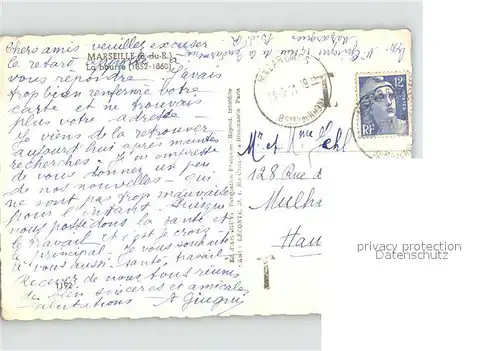 MARSEILLE (B.-du-R.)
La bourse (1852-1860)
Chers amis veuillez excuser
le retard
vous répondre. J'avais
trop bien renfermé votre
carte et ne trouvais
plus votre adresse
Je viens de la retrouver
aujourd'hui après maintes
recherches. Je m'empresse
de vous donner un peu
de nos nouvelles - qui
ne sont pas trop mauvaises
pour l'instant. Puisque
nous possédons la santé et
le travail et c'est je crois
le principal. Je vous souhaite
à vous aussi santé, travail
Recevez de nous tous réunis
de bien sincères et amicales
salutations A Giugni
1192
MAZARGUES
BCHES DU RHONE
12F
POSTES
RF
Mr et Mme
128 Rue
Mulh
Hau
privacy protection
Datenschutz